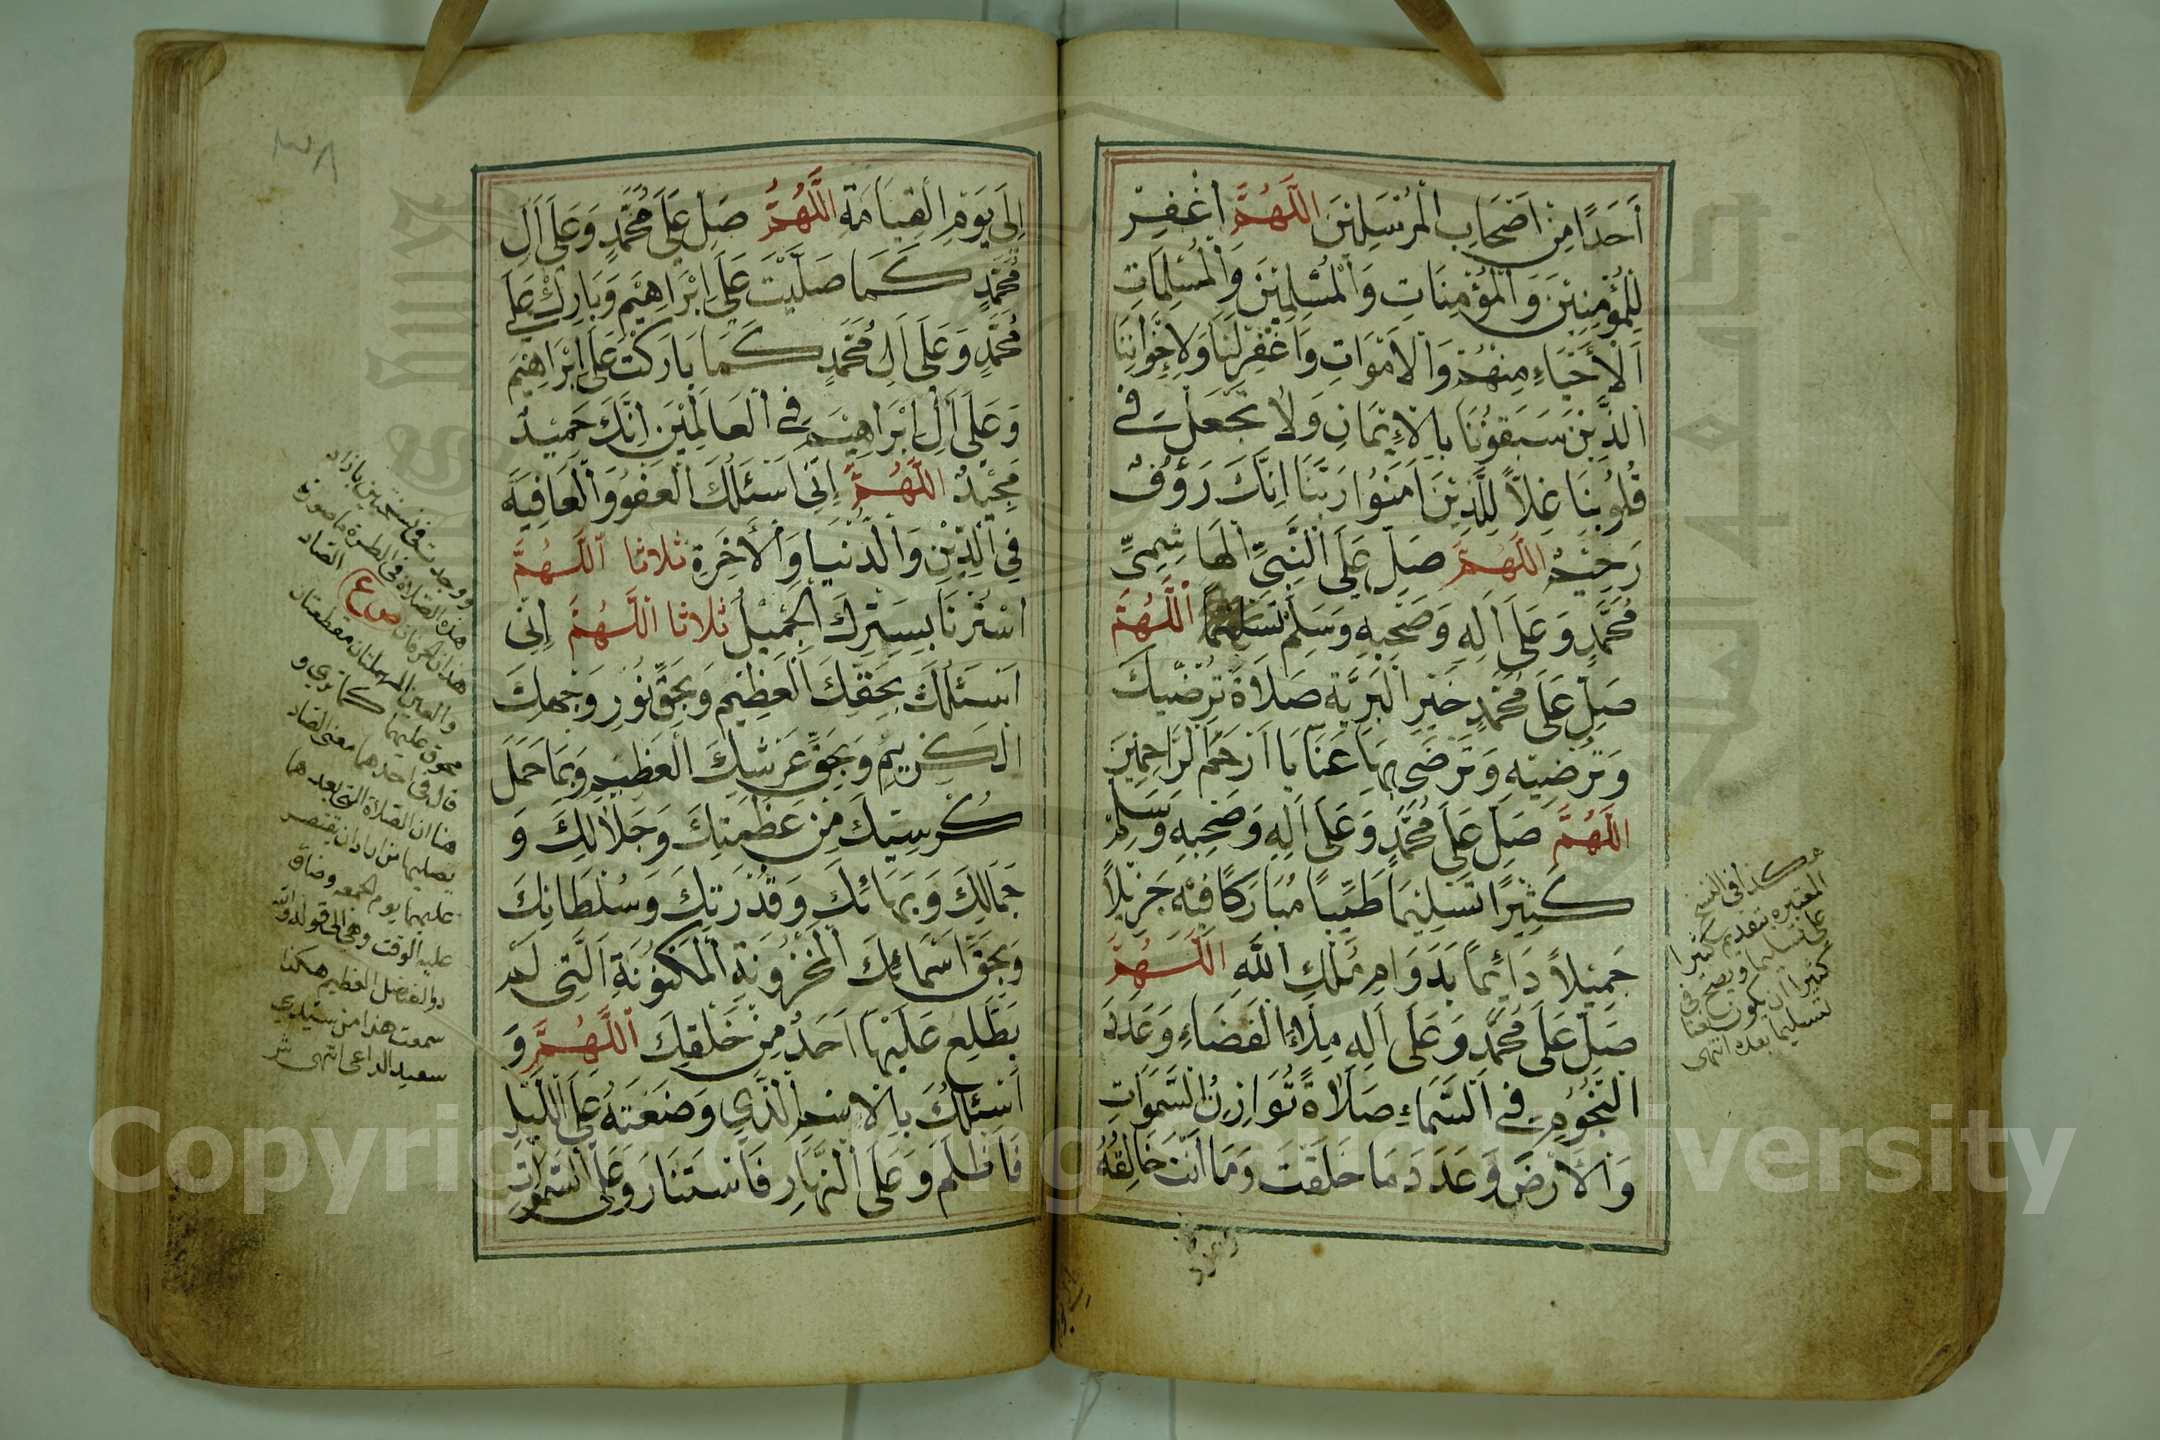 أَحَدًا مِنْ أَصْحَابِ الْمُرْسَلِينَ اللَّهُمَّ اغْفِرْ
لِلْمُؤْمِنِينَ وَالْمُؤْمِنَاتِ وَالْمُسْلِمِينَ وَالْمُسْلِمَاتِ
اَلْأَحْيَاءِ مِنْهُمْ وَالْأَمْوَاتِ وَاغْفِرْ لَنَا وَلِإِخْوَانِنَا
الَّذِينَ سَبَقُونَا بِالْإِيمَانِ وَلَا تَجْعَلْ فِي
قُلُوبِنَا غِلاًّ لِلَّذِينَ اٰمَنُوا رَبَّنَا اِنَّكَ رَؤُفٌ
رَحِيمٌ اللَّهُمَّ صَلِّ عَلَى النَّبِيِّ الْهَاشِمِيِّ
مُحَمَّدٍ وَعَلَى اٰلِهِ وَصَحْبِهِ وَسَلِّمْ تَسْلِيمًا اَللَّهُمَّ
صَلِّ عَلَى مُحَمَّدٍ خَيْرِ الْبَرِيَّةِ صَلَاةً تُرْضِيكَ
وَتُرْضِيهِ وَتَرْضَى بِهَا عَنَّا يَا أَرْحَمَ الرَّاحِمِينَ
اللَّهُمَّ صَلِّ عَلَى مُحَمَّدٍ وَعَلَى اٰلِهِ وَصَحْبِهِ وَسَلِّمْ
كَثِيرًا تَسْلِيمًا طَيِّبًا مُبَارَكًا فِيْهِ جَزِيْلاً
جَمِيْلاً دَائِمًا بِدَوَامِ مُلْكِ اللَّهِ اللَّهُمَّ
صَلِّ عَلَى مُحَمَّدٍ وَعَلَى اٰلِهِ مِلْأَ الْفَضَاءِ وَعَدَدَ
النُّجُومِ فِي السَّمَاءِ صَلَاةً تُوَازِنُ السَّمَوَاتِ
وَالْأَرْضَ وَعَدَدَ مَا خَلَقْتَ وَمَا أَنْتَ خَالِقُهُ
هكذا فى النسخ
المعتبره بتقديم كثيرا
على تسليما ويصح فى
كثيرا ان يكون نعتا
تسليما بعده انتهى
٣٨
إِلَى يَوْمِ الْقِيَامَةِ اللَّهُمَّ صَلِّ عَلَى مُحَمَّدٍ وَعَلَى اٰلِ
مُحَمَّدٍ كَمَا صَلَّيْتَ عَلَى اِبْرَاهِيْمَ وَبَارِكْ عَلَى
مُحَمَّدٍ وَعَلَى اٰلِ مُحَمَّدٍ كَمَا بَارَكْتَ عَلَى اِبْرَاهِيْمَ
وَعَلَى اٰلِ اِبْرَاهِيْمَ فِي الْعَالَمِيْنَ اِنَّكَ حَمِيْدٌ
مَجِيْدٌ اللَّهُمَّ إِنِّي اَسْئَلُكَ الْعَفْوَ وَالْعَافِيَةَ
فِي الدِّيْنِ وَالدُّنْيَا وَالْأٰخِرَةِ ثلاثا اَللَّهُمَّ
اسْتُرْنَا بِسِتْرِكَ الْجَمِيْلِ ثلاثا اللَّهُمَّ اِنِّي
اَسْئَلُكَ بِحَقِّكَ الْعَظِيْمِ وَبِحَقِّ نُوْرِ وَجْهِكَ
الْكَرِيْمِ وَبِحَقِّ عَرْشِكَ الْعَظِيْمِ وَبِمَا حَمَلَ
كُرْسِيُّكَ مِنْ عَظَمَتِكَ وَجَلَالِكَ وَ
جَمَالِكَ وَبَهَائِكَ وَقُدْرَتِكَ وَسُلْطَانِكَ
وَبِحَقِّ اَسْمَائِكَ الْمَخْزُوْنَةِ الْمَكْنُوْنَةِ الَّتِي لَمْ
يَطَّلِعْ عَلَيْهَا اَحَدٌ مِنْ خَلْقِكَ اَللَّهُمَّ وَ
اَسْئَلُكَ بِالْاِسْمِ الَّذِي وَضَعْتَهُ عَلَى اللَّيْلِ
فَاَظْلَمَ وَعَلَى النَّهَارِ فَاسْتَنَارَ وَعَلَى السَّمَوَاتِ
ووجدت فى نسختين بازاء
هذه الصلاة فى الطرة ما صورة
هذان الحرفان ص ع الصاد
والعين المهملتان مقطعتان
محوق عليهما كما ترى و
قال فى احدهما معنى الصاد
هنا ان الصلاة التى بعدها
يصليها من اراد ان يقتصر
عليها يوم الجمعه وضاق
عليه الوقت وهى الى قوله والله
ذو الفضل العظيم هكذا
سمعت هذا من سيدى
سعيد الداعى انتهى
Copyright © King Saud University